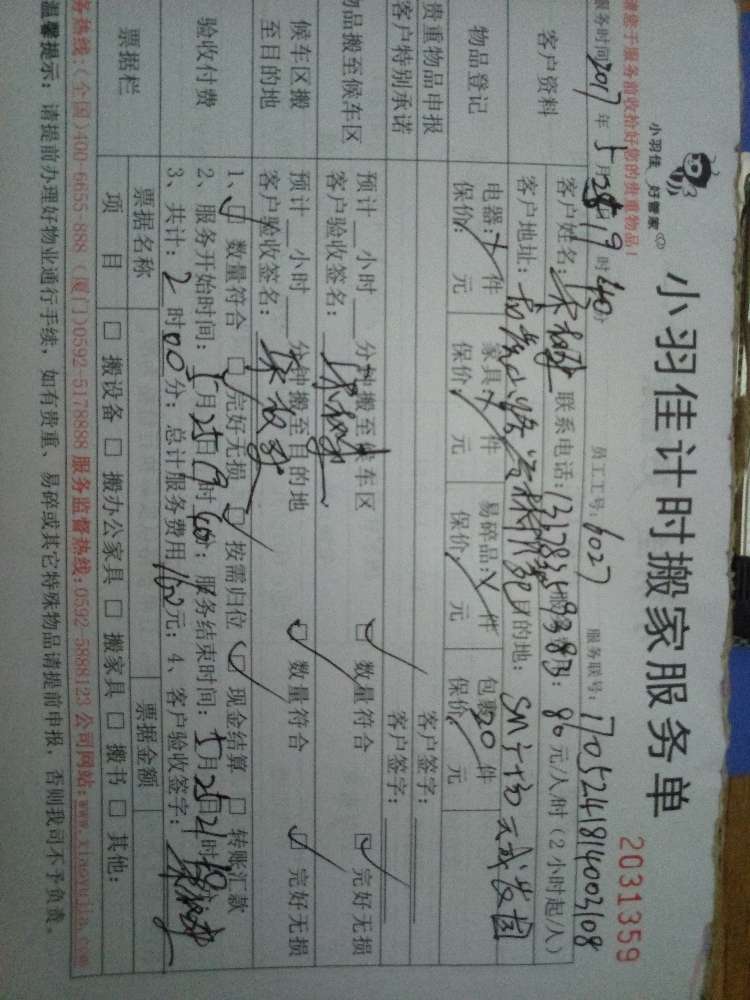 小羽佳计时搬家服务单
小羽佳 好管家
2031359
请您于服务前收拾好您的贵重物品！
服务时间2017年5月25日19时40分 员工工号：6027 服务联号：
客户资料
客户姓名： 联系电话： 86元/人/时（2小时起/人）
客户地址： 目的地：SM广场
物品登记
电器： 件 家具： 件 易碎品： 件 包裹20件
保价： 元 保价： 元 保价： 元 保价： 元
贵重物品申报 客户签字：
客户特别承诺 客户签字：
物品搬至候车区
预计 小时 分钟搬至候车区 □ 数量符合 □ 完好无损
客户验收签名：
候车区搬至目的地
预计 小时 分钟搬至目的地 □ 数量符合 □ 完好无损
客户验收签名：
验收付费
1、□ 数量符合 □ 完好无损 □ 按需归位 □ 现金结算 □ 转账汇款
2、服务开始时间：5月25日19时40分；服务结束时间：5月25日21时40分；
3、共计：2时00分；总计服务费用 元；4、客户验收签字：
票据栏
票据名称 票据金额
项目 □ 搬设备 □ 搬办公家具 □ 搬家具 □ 搬书 □ 其他：
务热线：（全国）400-6655-888（厦门）0592-5178888 服务监督热线：0592-5888123 公司网站：www.xiaoyujia.com
温馨提示：请提前办理好物业通行手续，如有贵重、易碎或其它特殊物品请提前申报，否则我司不予负责。